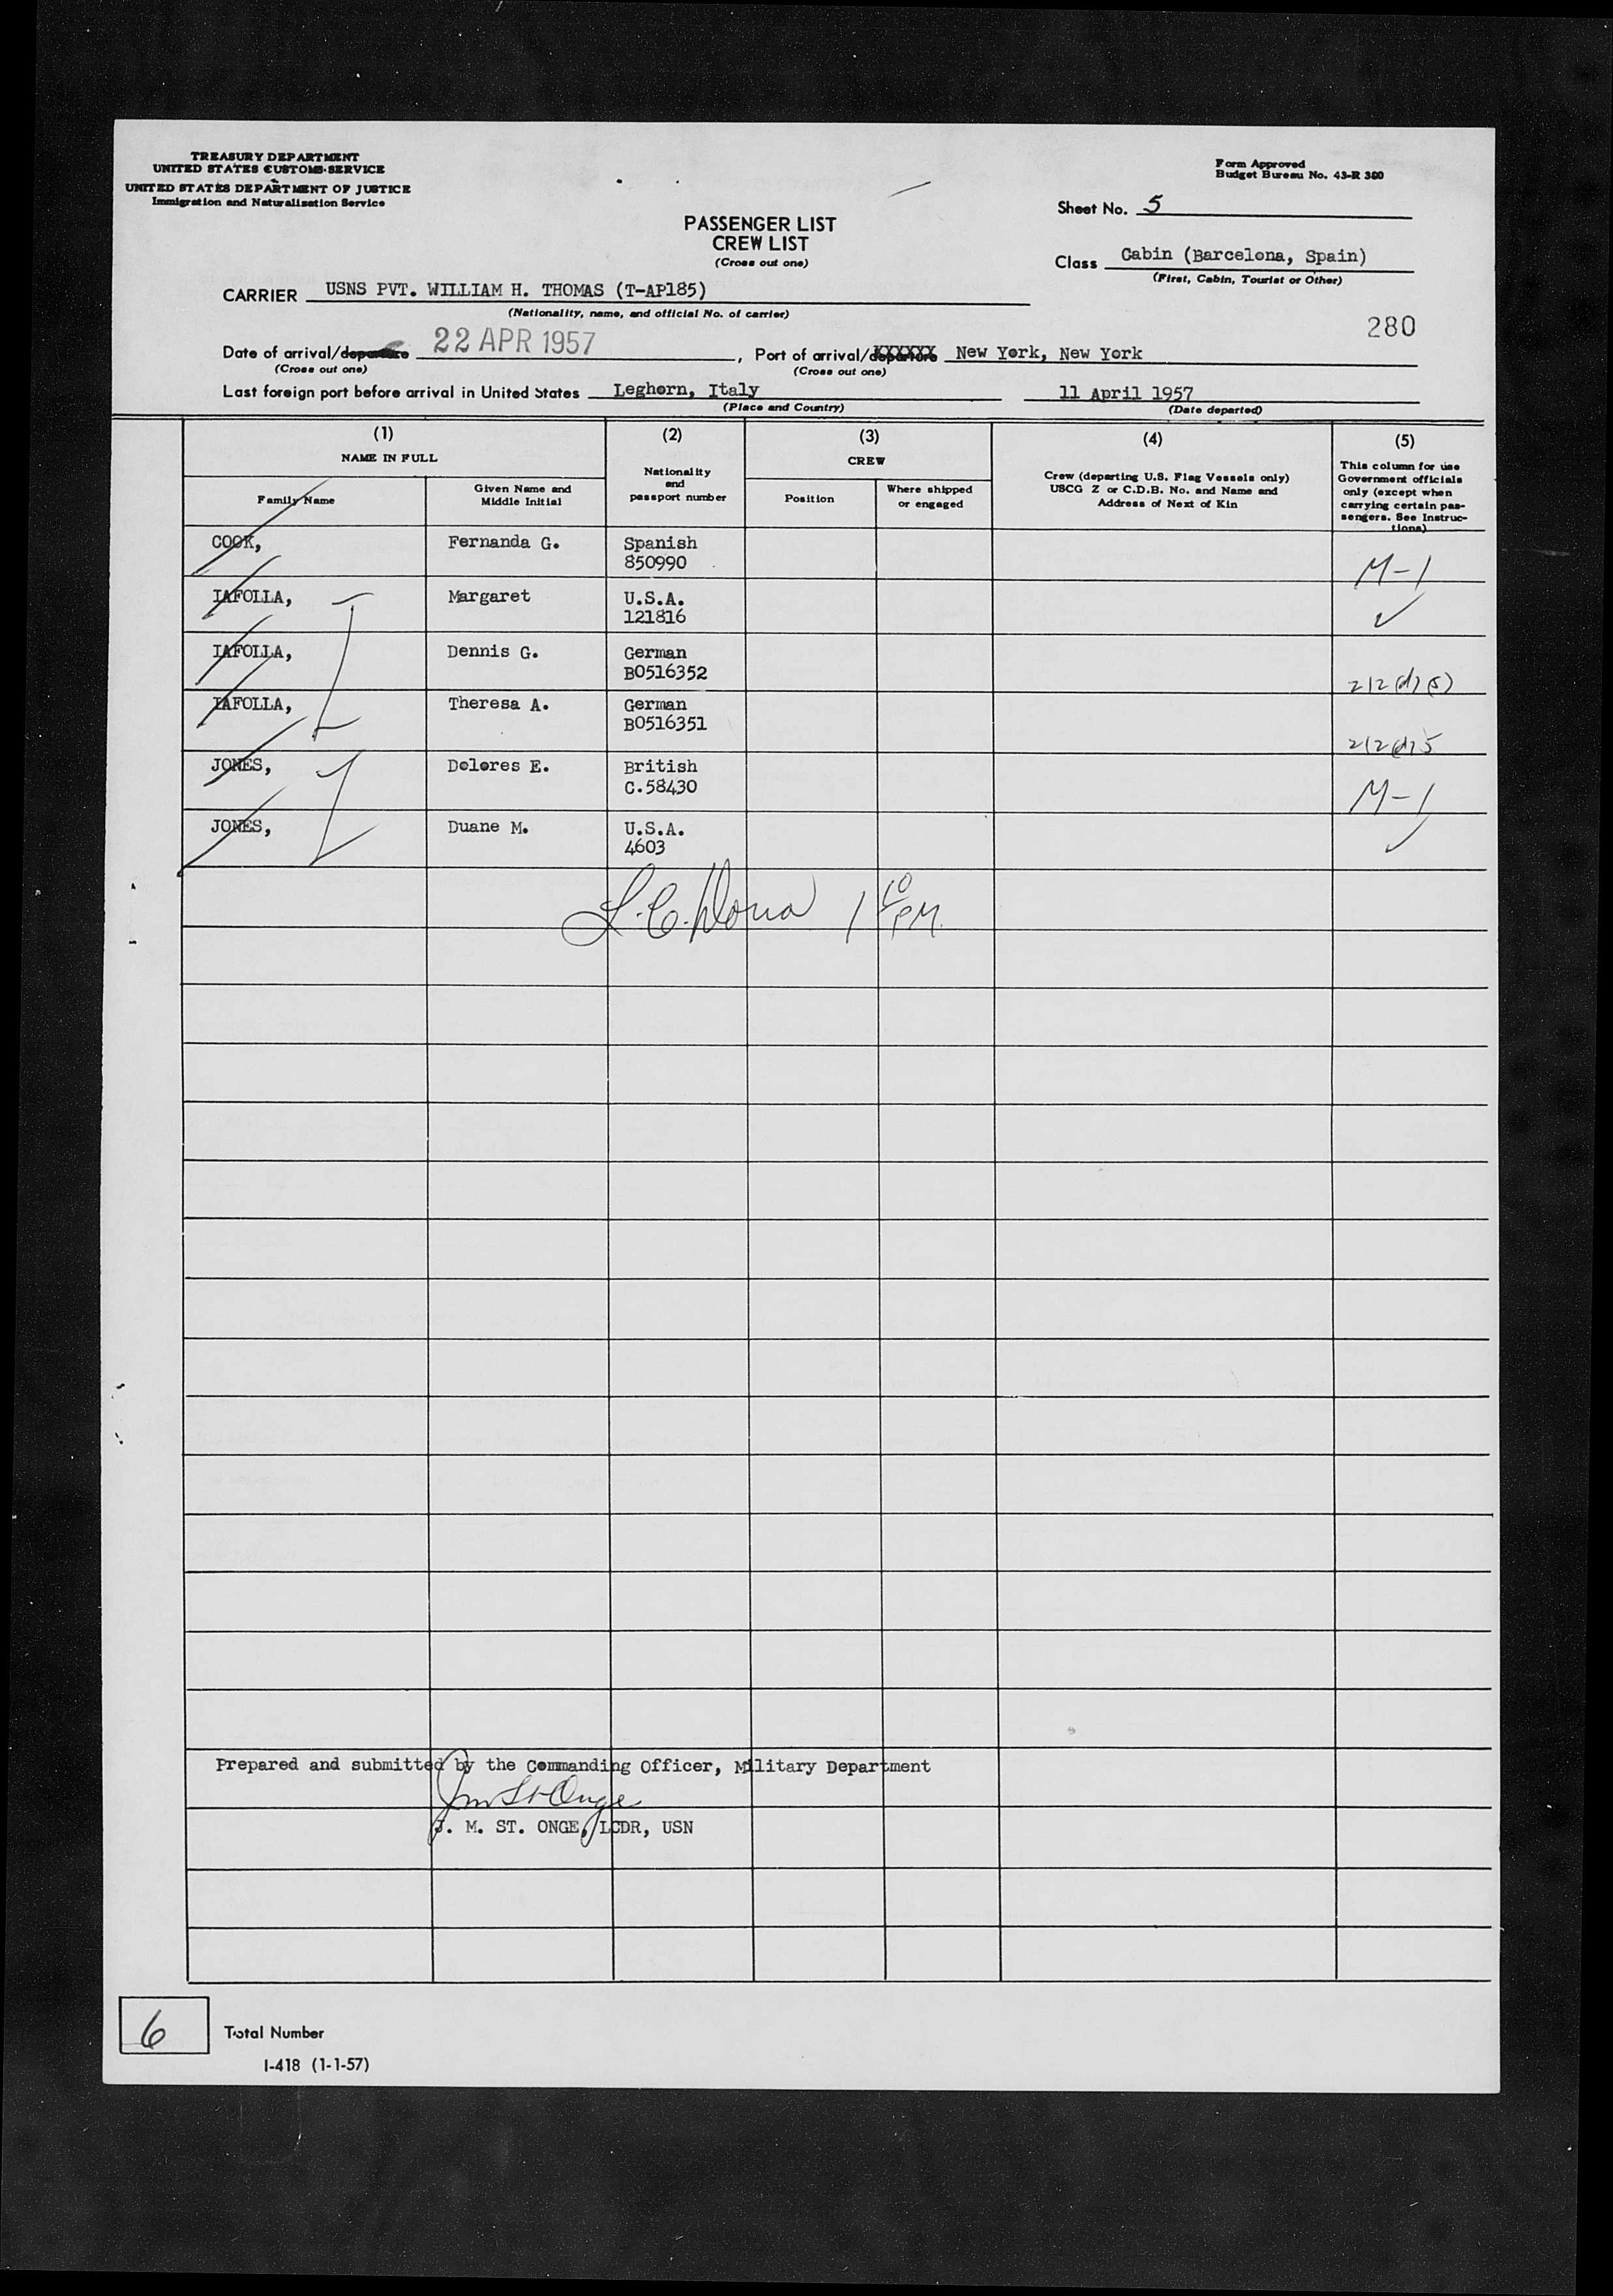 TREASURY DEPARTMENT
UNITED STATES CUSTOMS SERVICE
UNITED STATES DEPARTMENT OF JUSTICE
Immigration and Naturalization Service
Form Approved
Budget Bureau No. 43-R 380
Sheet No. 5
PASSENGER LIST
CREW LIST
(Cross out one)
Class Cabin (Barcelona, Spain)
(First, Cabin, Tourist or Other)
CARRIER USNS PVT. WILLIAM H. THOMAS (T-AP185)
(Nationality, name, and official No. of carrier)
280
Date of arrival/departure 22 APR 1957, Port of arrival/departure New York, New York
(Cross out one) (Cross out one)
Last foreign port before arrival in United States Leghorn, Italy 11 April 1957
(Place and Country) (Date departed)
(1) (2) (3) (4) (5)
NAME IN FULL
Family Name
Given Name and
Middle Initial
Nationality
and
passport number
CREW
Position
Where shipped
or engaged
Crew (departing U.S. Flag Vessels only)
USCG Z or C.D.B. No. and Name and
Address of Next of Kin
This column for use
Government officials
only (except when
carrying certain pas-
sengers. See Instruc-
tions)
COOK, Fernanda G. Spanish
850990 M-1
IAFOLLA, Margaret U.S.A.
121816
IAFOLLA, Dennis G. German
B0516352 212(d)(5)
IAFOLLA, Theresa A. German
B0516351 212(d)5
JONES, Dolores E. British
C.58430 M-1
JONES, Duane M. U.S.A.
4603
1 10 PM
Prepared and submitted by the Commanding Officer, Military Department
J M St Onge
J. M. ST. ONGE, LCDR, USN
6 Total Number
I-418 (1-1-57)